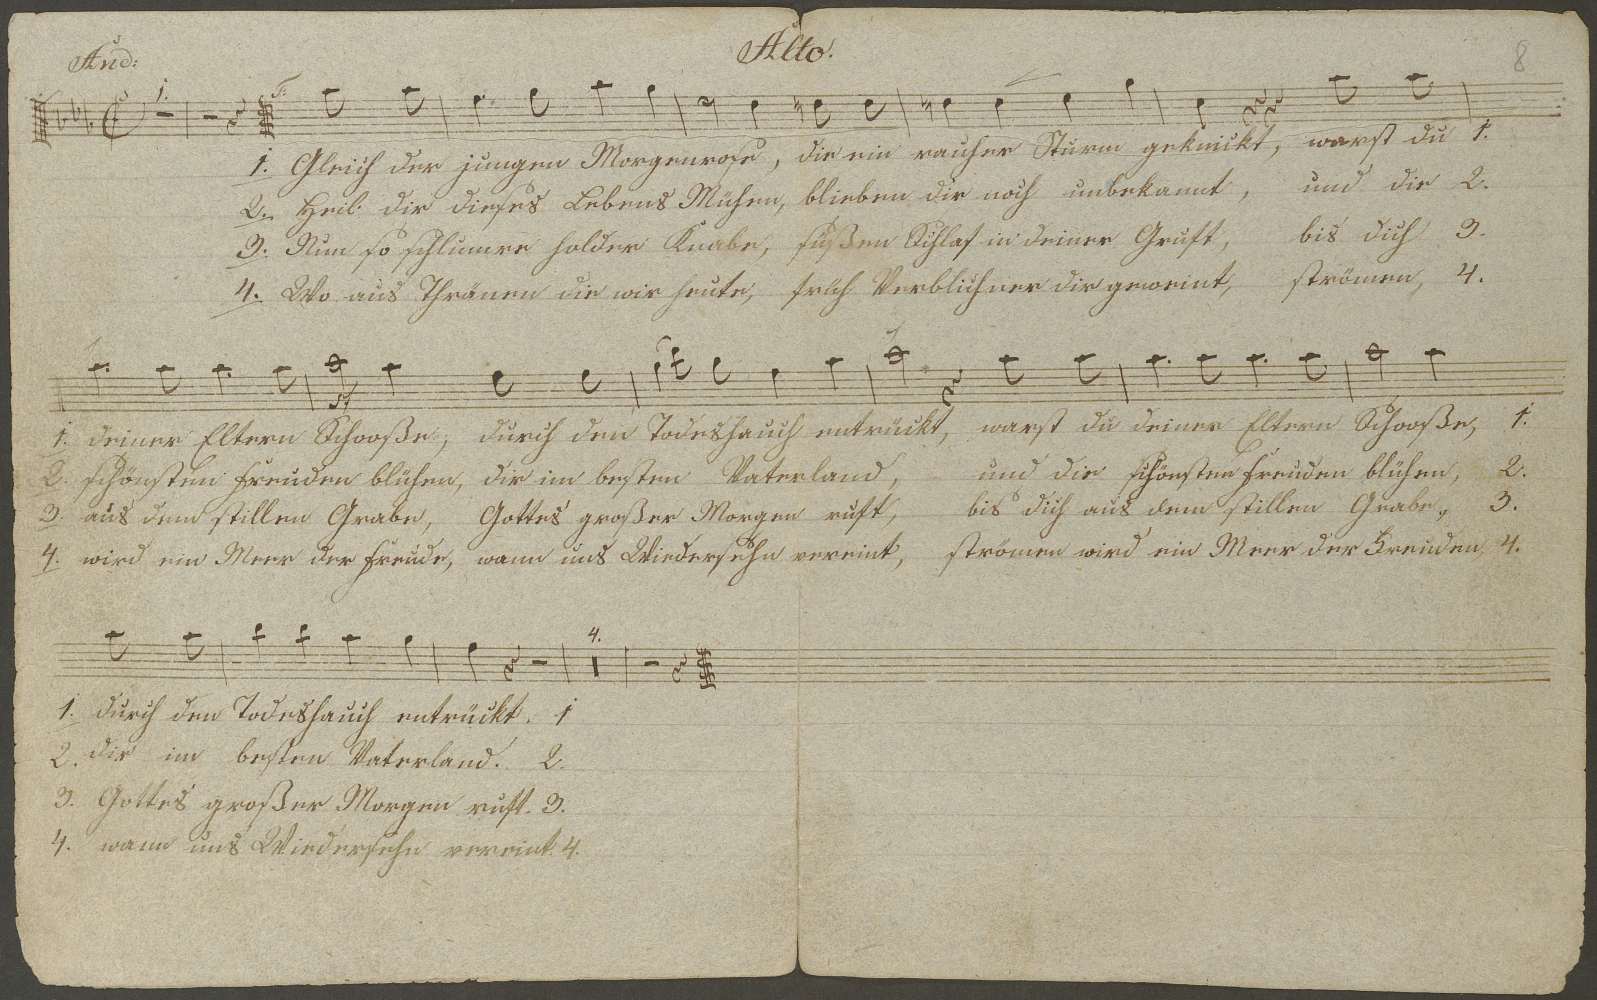 Alto.
8
And:
1.
1. Gleich der jungen Morgenrose, die ein rauher Sturm geknickt, warst du 1.
2. Heil dir dieses Lebens Mühen, blieben dir noch unbekannt, und die 2.
3. Nun so schlumre holder Knabe, süßen Schlaf in deiner Gruft, bis dich 3.
4. Wo aus Thränen die wir heute, früh Verblichner dir geweint, strömen, 4.
1. deiner Eltern Schooße, durch den Todeshauch entrückt, warst du deiner Eltern Schooße, 1.
2. schönsten Freuden blühen, dir im besten Vaterland, und die schönsten Freuden blühen, 2.
3. aus dem stillen Grabe, Gottes großer Morgen ruft, bis dich aus dem stillen Grabe, 3.
4. wird ein Meer der Freude, wann uns Wiedersehn vereint, strömen wird ein Meer der Freuden, 4.
4.
1. durch den Todeshauch entrückt. 1
2. dir im besten Vaterland. 2.
3. Gottes großer Morgen ruft. 3.
4. wann uns Wiedersehn vereint. 4.